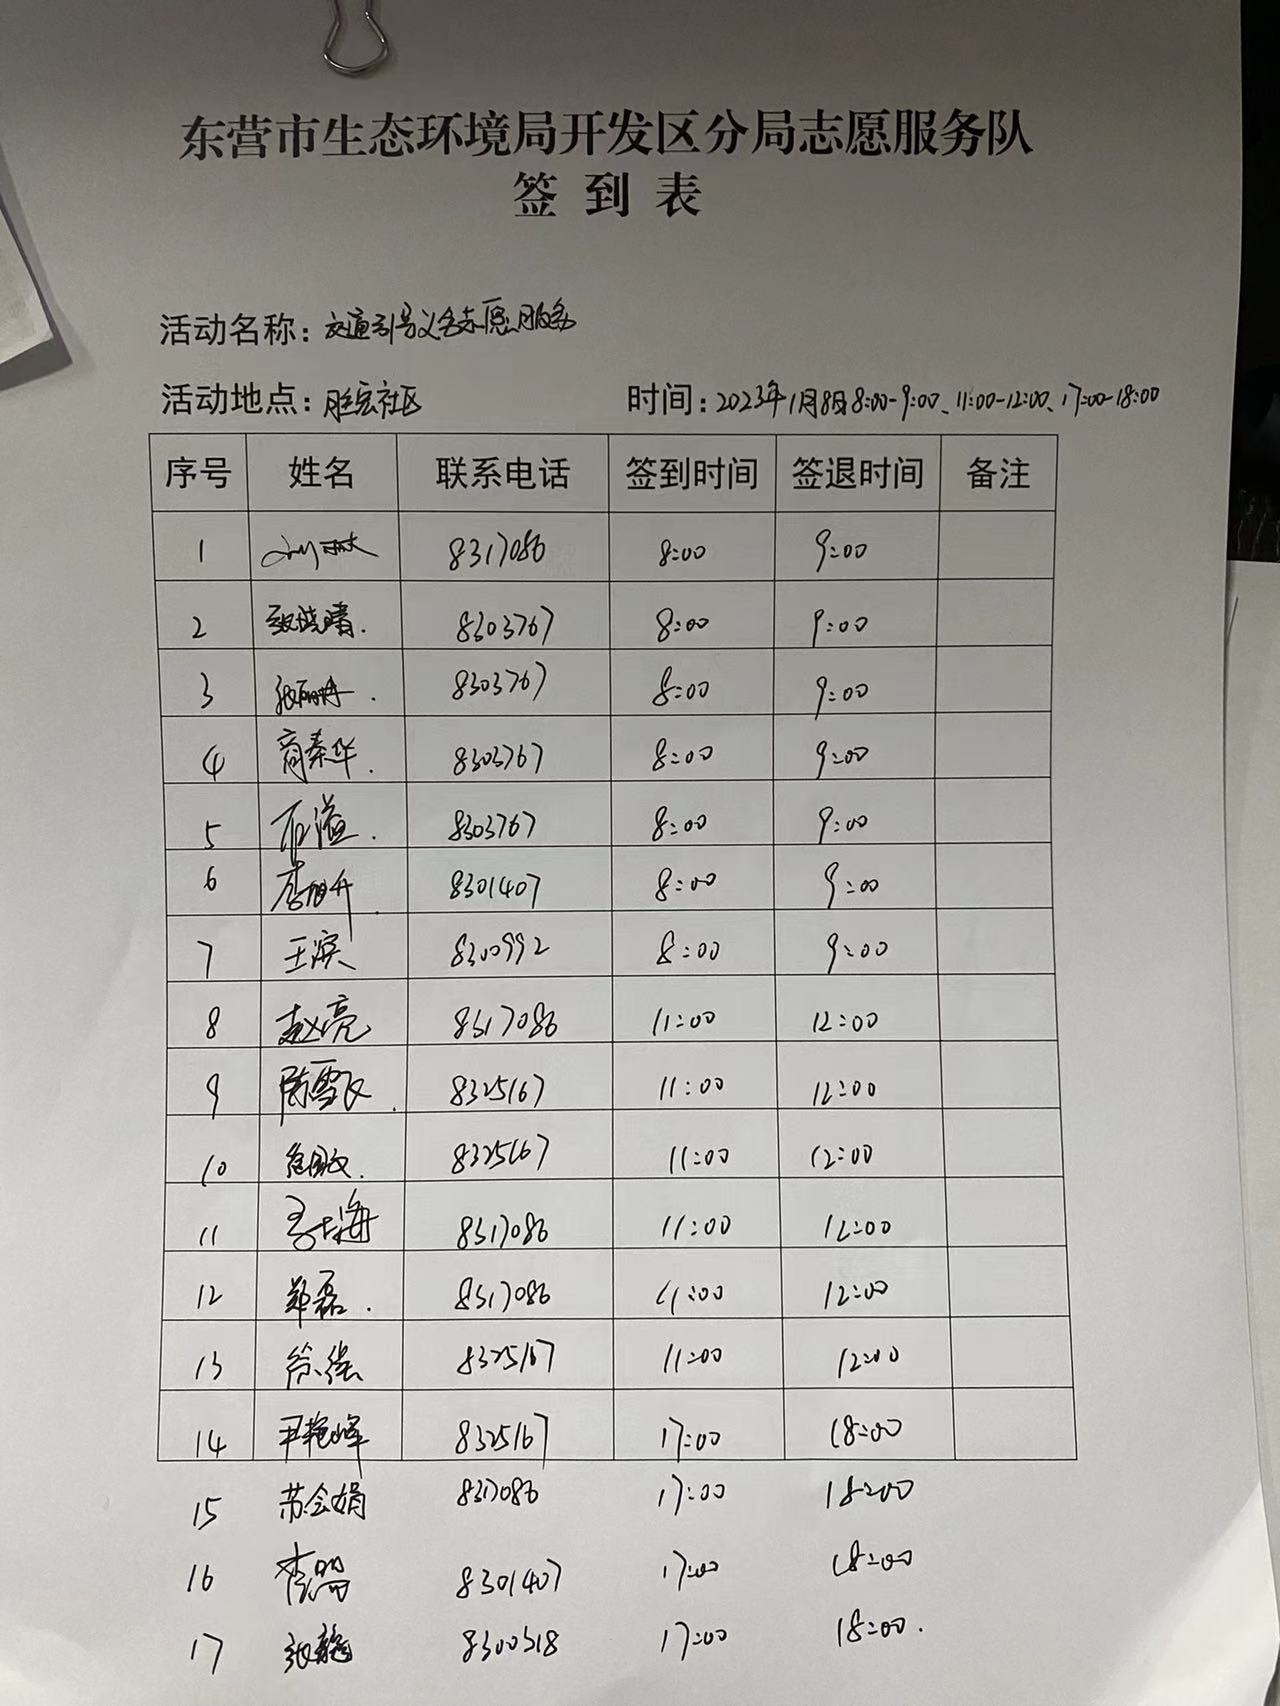 东营市生态环境局开发区分局志愿服务队
签到表
活动名称：交通引导义务志愿服务
活动地点：胜宏社区 时间：2023年1月8日8:00-9:00、11:00-12:00、17:00-18:00
序号 姓名 联系电话 签到时间 签退时间 备注
1 8317086 8:00 9:00
2 张晓晴. 8303767 8:00 9:00
3 8303767 8:00 9:00
4 商秦华. 8303767 8:00 9:00
5 8303767 8:00 9:00
6 8301407 8:00 9:00
7 王滨 8300992 8:00 9:00
8 赵亮 8317086 11:00 12:00
9 陈雪飞. 8325167 11:00 12:00
10 8325167 11:00 12:00
11 8317086 11:00 12:00
12 郑磊. 8317086 11:00 12:00
13 徐强 8325167 11:00 12:00
14 尹艳峰 8325167 17:00 18:00
15 苏会娟 8317086 17:00 18:00
16 8301407 17:00 18:00
17 8300318 17:00 18:00.